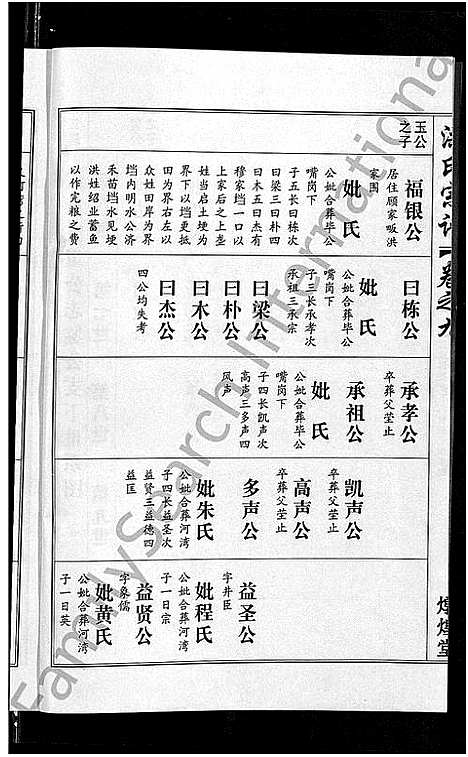 洪氏宗谱
卷之九
煌煌堂
玉公
之子
福银公
居住顾家畈洪
家围
妣氏
公妣合葬毕公
嘴岗下
子五长曰栋次
曰梁三曰朴四
曰木五曰杰有
穆家垱一口以
上家后之上垄
姓当启土埂为
界下以垱更抵
田为界右左以
众姓田岸为界
垱内明水公济
禾苗垱水见埂
洪姓绍业蓄鱼
以作完粮之费
曰栋公
妣氏
公妣合葬毕公
嘴岗下
子三长承孝次
承祖三承宗
曰梁公
曰朴公
曰木公
曰杰公
四公均失考
承孝公
卒葬父茔止
承祖公
妣氏
公妣合葬毕公
嘴岗下
子四长凯声次
高声三多声四
风声
凯声公
卒葬父茔止
高声公
卒葬父茔止
多声公
妣朱氏
公妣合葬河湾
子四长益圣次
益贤三益德四
益匡
益圣公
字井臣
妣程氏
公妣合葬河湾
子一日宗
益贤公
字象儒
妣黄氏
公妣合葬河湾
子一日英
FamilySearch International